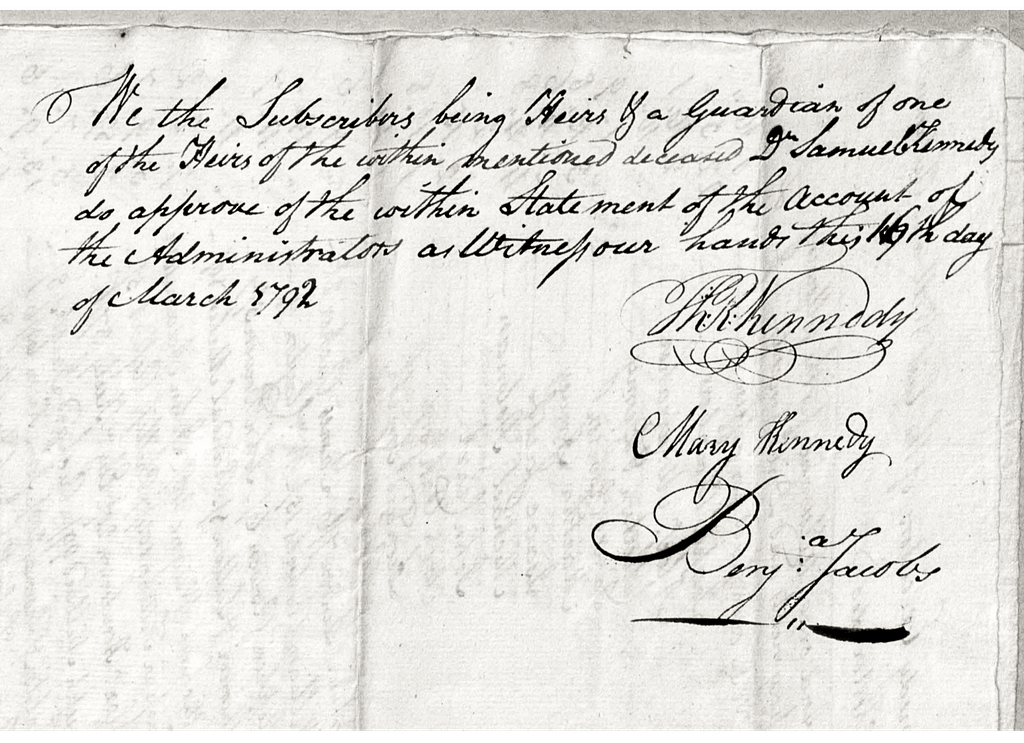 We the Subscribers being Heirs & a Guardian of one
of the Heirs of the within mentioned deceased Dr Samuel Kennedy
do approve of the within Statement of the Account of
the Administrators as Witness our hands this 16th day
of March 1792
Th: R: Kennedy
Mary Kennedy
Benj:a Jacobs